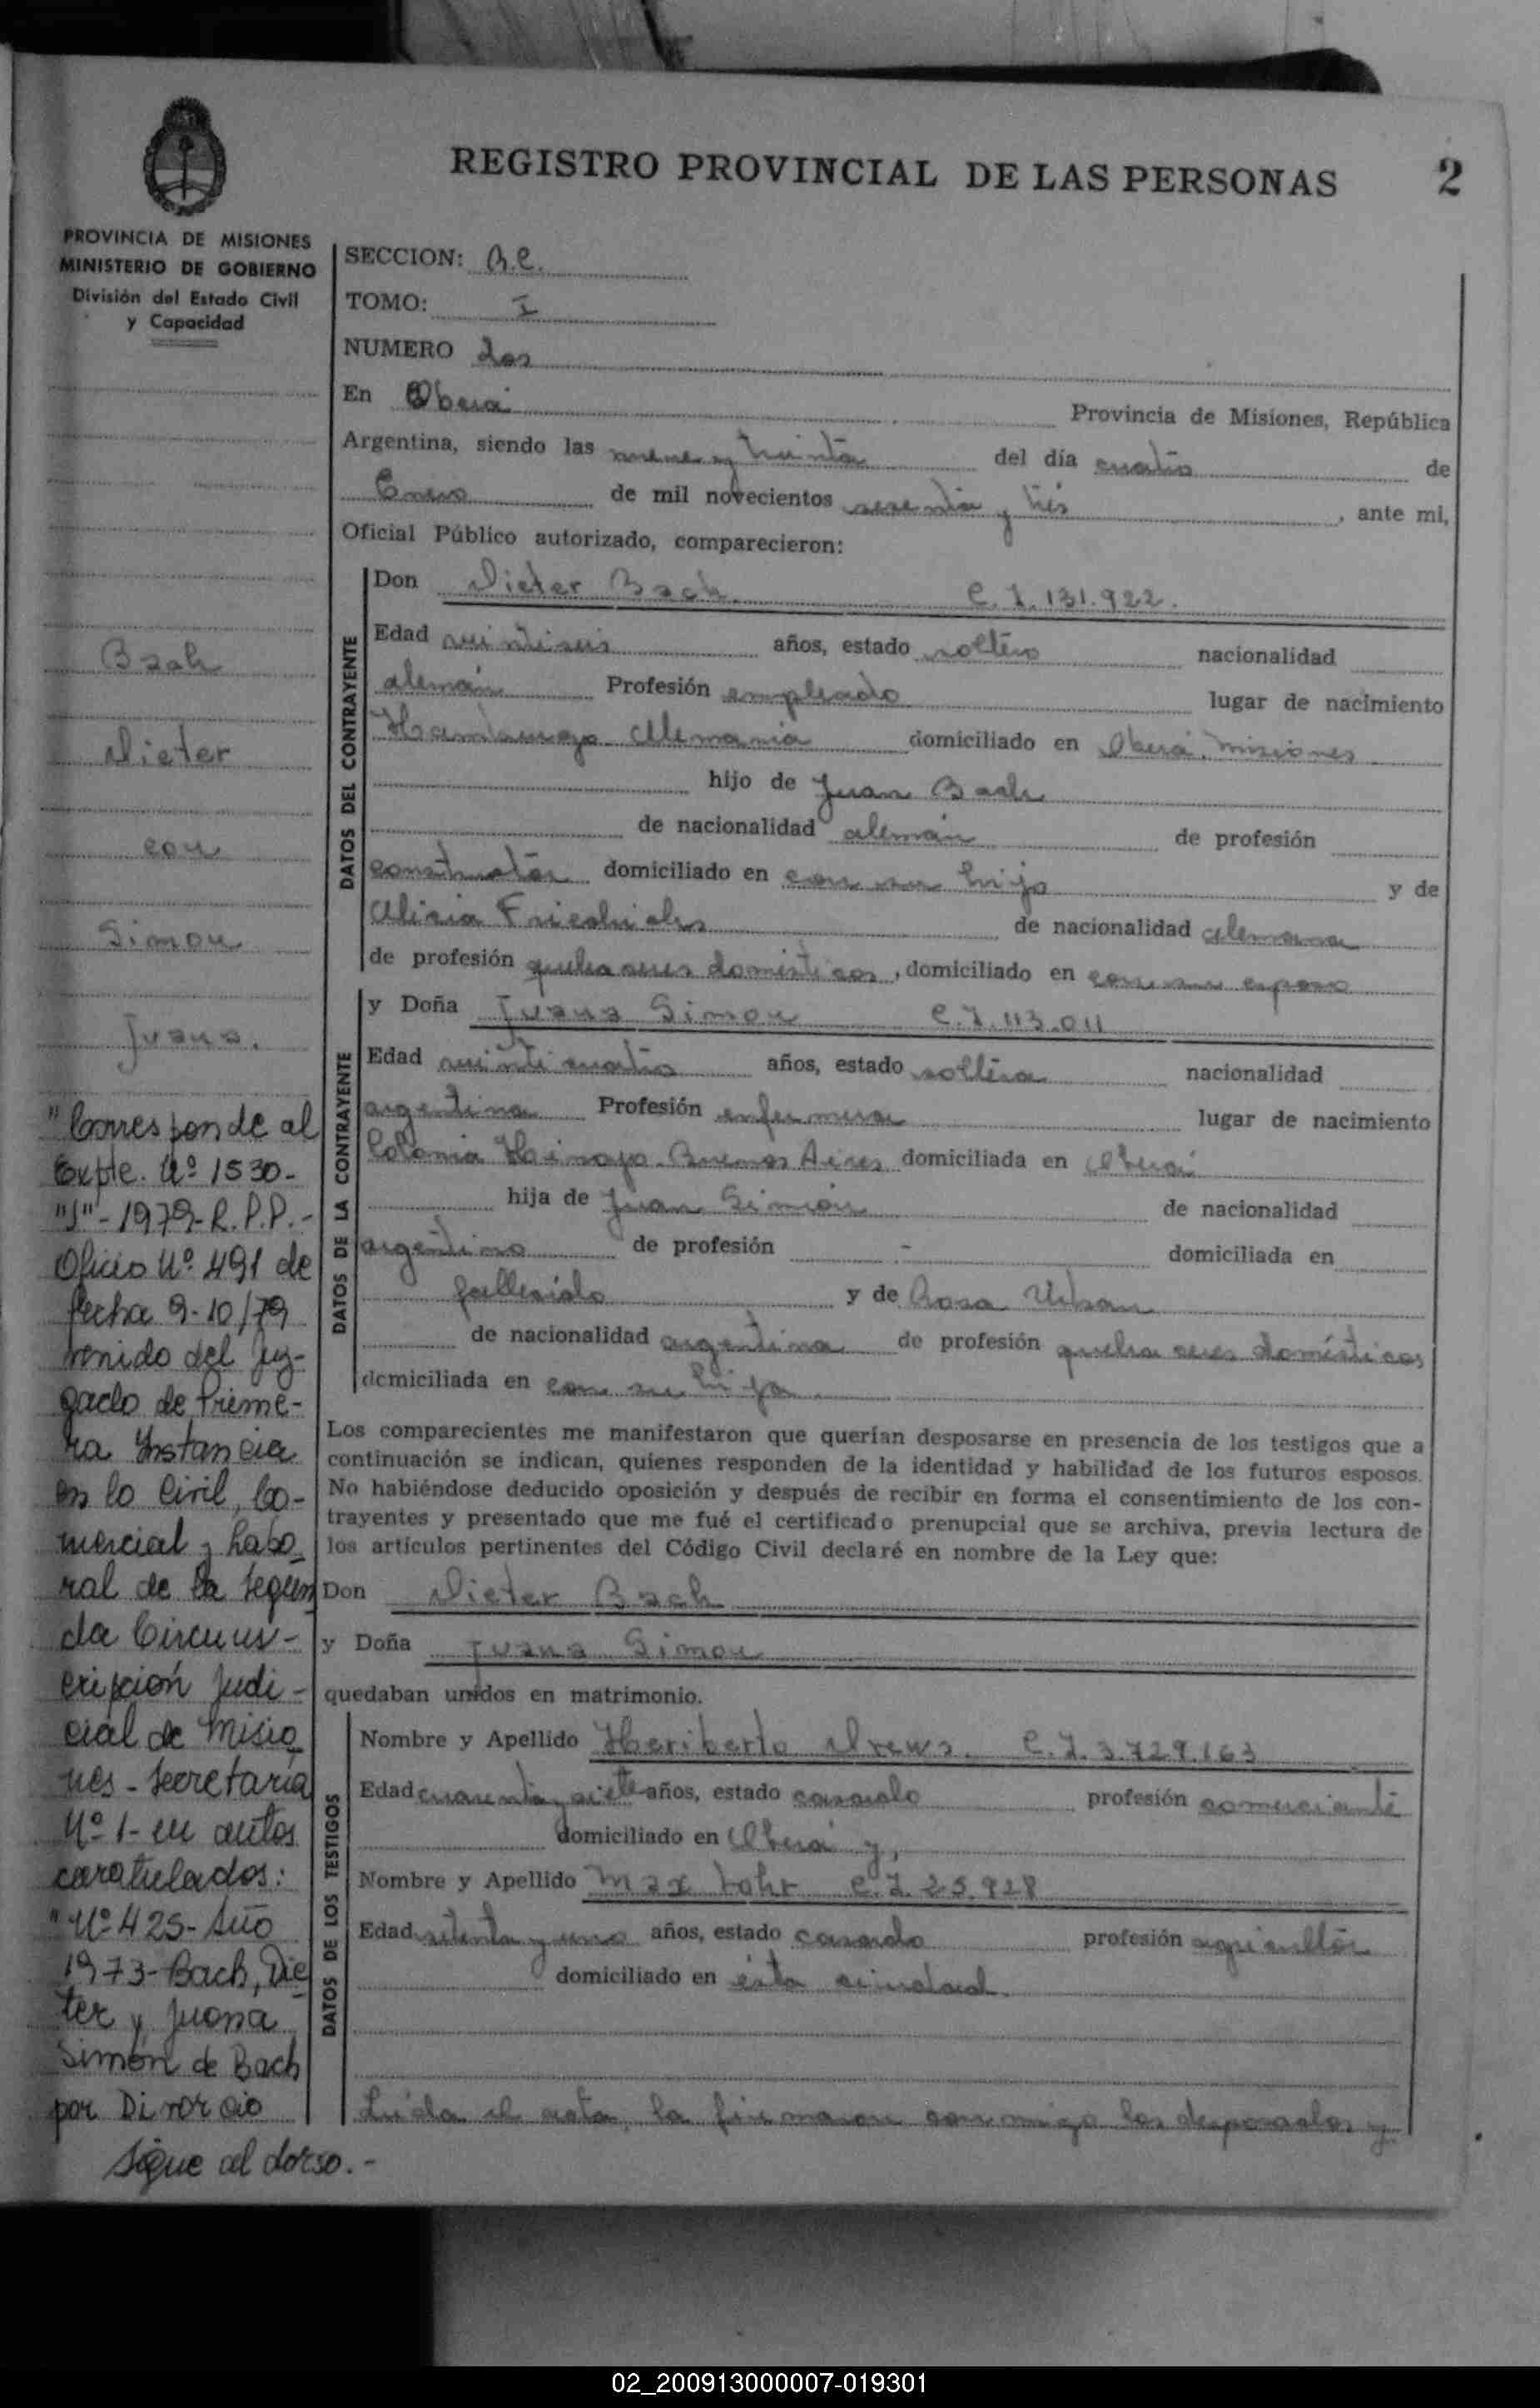 REGISTRO PROVINCIAL DE LAS PERSONAS 2
PROVINCIA DE MISIONES
MINISTERIO DE GOBIERNO
División del Estado Civil
y Capacidad
Bach
Dieter
con
Simon
Juana.
"Corresponde al
Expte. Nº 1530-
"J"-1979-R.P.P.-
Oficio Nº 491 de
fecha 9-10/79
venido del Juz-
gado de Prime-
ra Instancia
en lo Civil, Co-
mercial y Labo-
ral de la Segun
da Circuns-
cripción Judi-
cial de Misio
nes-Secretaría
Nº 1- en autos
caratulados:
"Nº 425-Año
1973-Bach, Die
ter y Juana
Simón de Bach
por Divorcio
Sigue al dorso.-
SECCION:
TOMO: I
NUMERO dos
En Oberá Provincia de Misiones, República
Argentina, siendo las nueve y treinta del día cuatro de
Enero de mil novecientos sesenta y tres, ante mi,
Oficial Público autorizado, comparecieron:
DATOS DEL CONTRAYENTE
Don Dieter Bach C.I. 131.922.
Edad veintiseis años, estado soltero nacionalidad
alemán Profesión empleado lugar de nacimiento
Hamburgo Alemania domiciliado en Oberá. Misiones
hijo de Juan Bach
de nacionalidad alemán de profesión
constructor domiciliado en con su hijo y de
Alicia Friedrichs de nacionalidad alemana
de profesión quehaceres domésticos, domiciliado en con su esposo
DATOS DE LA CONTRAYENTE
y Doña Juana Simon C.I. 113.011
Edad veinticuatro años, estado soltera nacionalidad
argentina Profesión enfermera lugar de nacimiento
Colonia Hinojo. Buenos Aires domiciliada en Oberá
hija de Juan Simón de nacionalidad
argentino de profesión - domiciliada en
fallecido y de Rosa Urban
de nacionalidad argentina de profesión quehaceres domésticos
domiciliada en con su hija
Los comparecientes me manifestaron que querían desposarse en presencia de los testigos que a
continuación se indican, quienes responden de la identidad y habilidad de los futuros esposos.
No habiéndose deducido oposición y después de recibir en forma el consentimiento de los con-
trayentes y presentado que me fué el certificado prenupcial que se archiva, previa lectura de
los artículos pertinentes del Código Civil declaré en nombre de la Ley que:
Don Dieter Bach
y Doña Juana Simon
quedaban unidos en matrimonio.
DATOS DE LOS TESTIGOS
Nombre y Apellido Heriberto Drews. C.I. 3.729.163
Edad cuarenta y siete años, estado casado profesión comerciante
domiciliado en Oberá y,
Nombre y Apellido Max C.I. 25.928
Edad setenta y uno años, estado casado profesión agricultor
domiciliado en ésta ciudad.
Leída el acta, la firmaron conmigo los desposados y
02_200913000007-019301